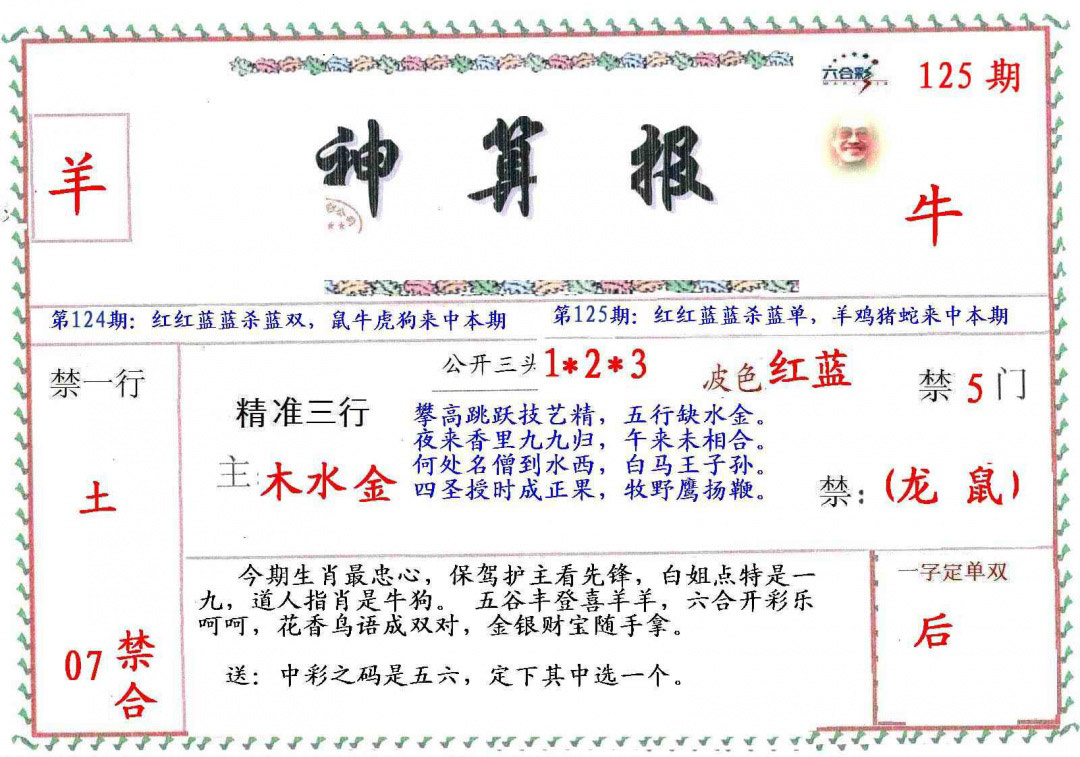 六合彩
125期
羊
神算报
牛
第124期：红红蓝蓝杀蓝双，鼠牛虎狗来中本期
第125期：红红蓝蓝杀蓝单，羊鸡猪蛇来中本期
禁一行
土
07禁合
公开三头1*2*3
波色红蓝
精准三行
主:木水金
攀高跳跃技艺精，五行缺水金。
夜来香里九九归，午来未相合。
何处名僧到水西，白马王子孙。
四圣授时成正果，牧野鹰扬鞭。
禁5门
禁：(龙 鼠)
今期生肖最忠心，保驾护主看先锋，白姐点特是一
九，道人指肖是牛狗。 五谷丰登喜羊羊，六合开彩乐
呵呵，花香鸟语成双对，金银财宝随手拿。
送：中彩之码是五六，定下其中选一个。
一字定单双
后